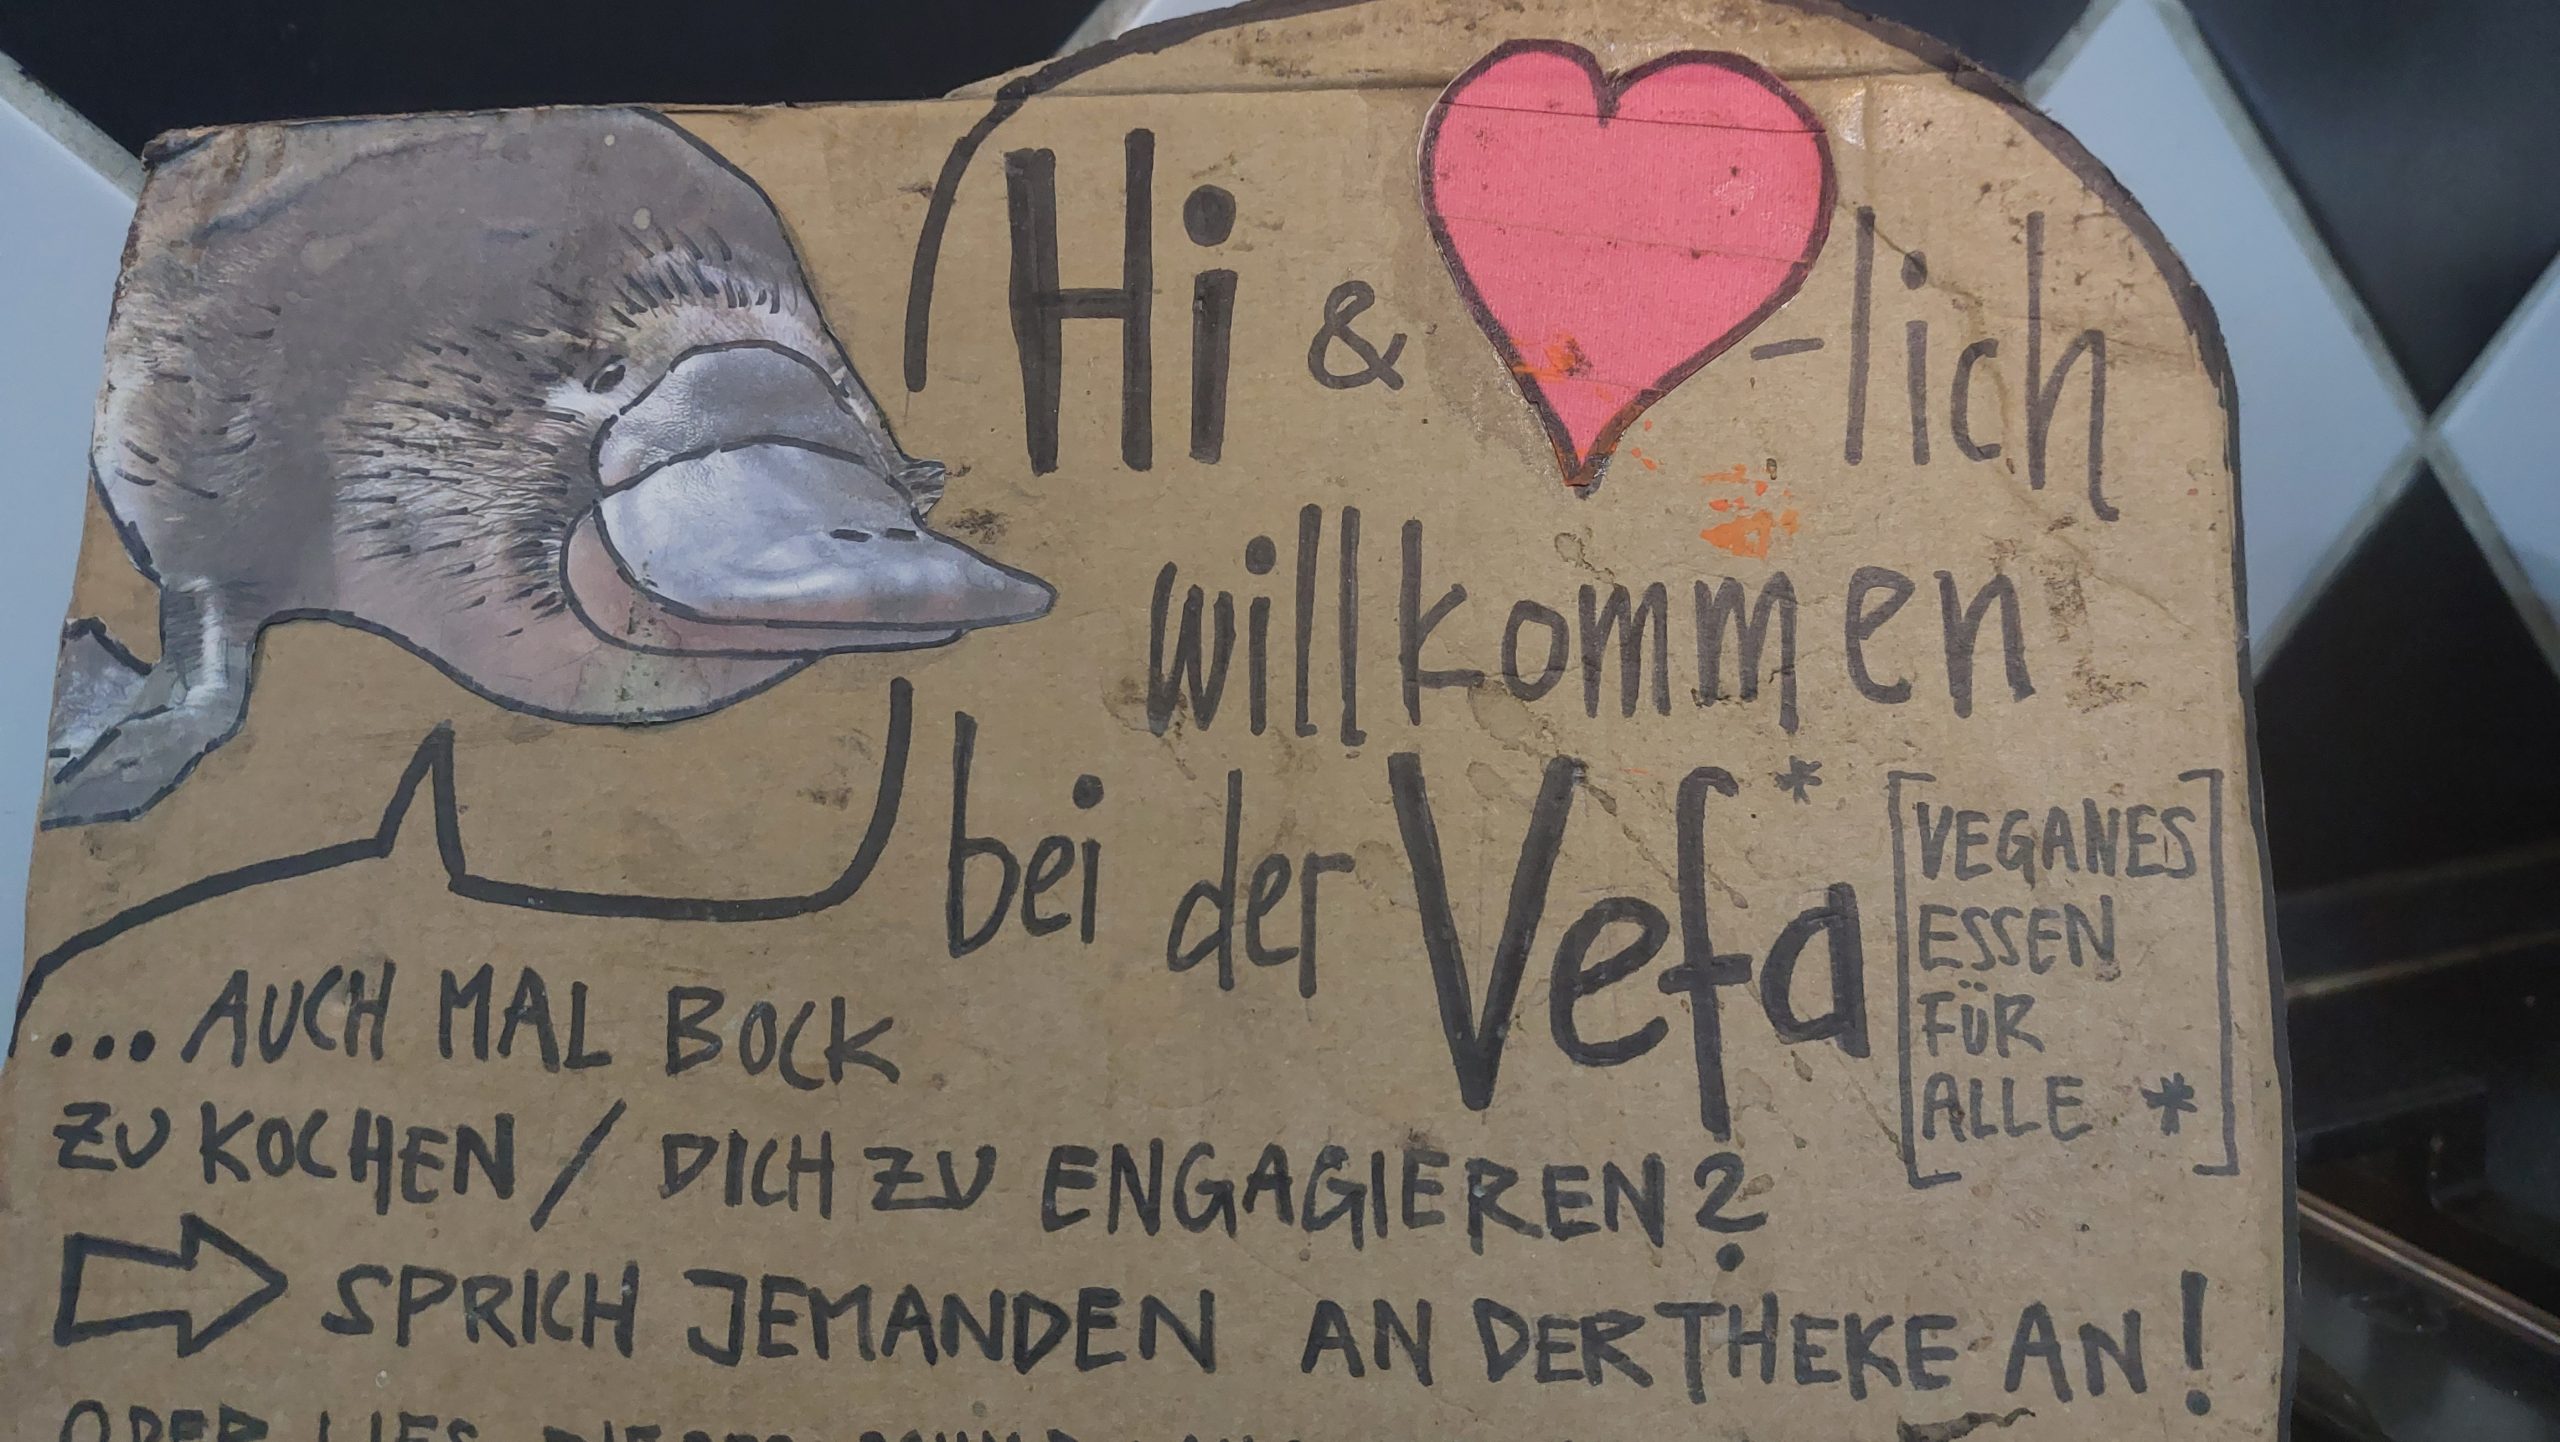 Hi & ❤-lich
willkommen
bei der Vefa*
[VEGANES
ESSEN
FÜR
ALLE *]
...AUCH MAL BOCK
ZU KOCHEN / DICH ZU ENGAGIEREN?
⇨ SPRICH JEMANDEN AN DER THEKE AN!
ODER LIES DIESES SCHILD